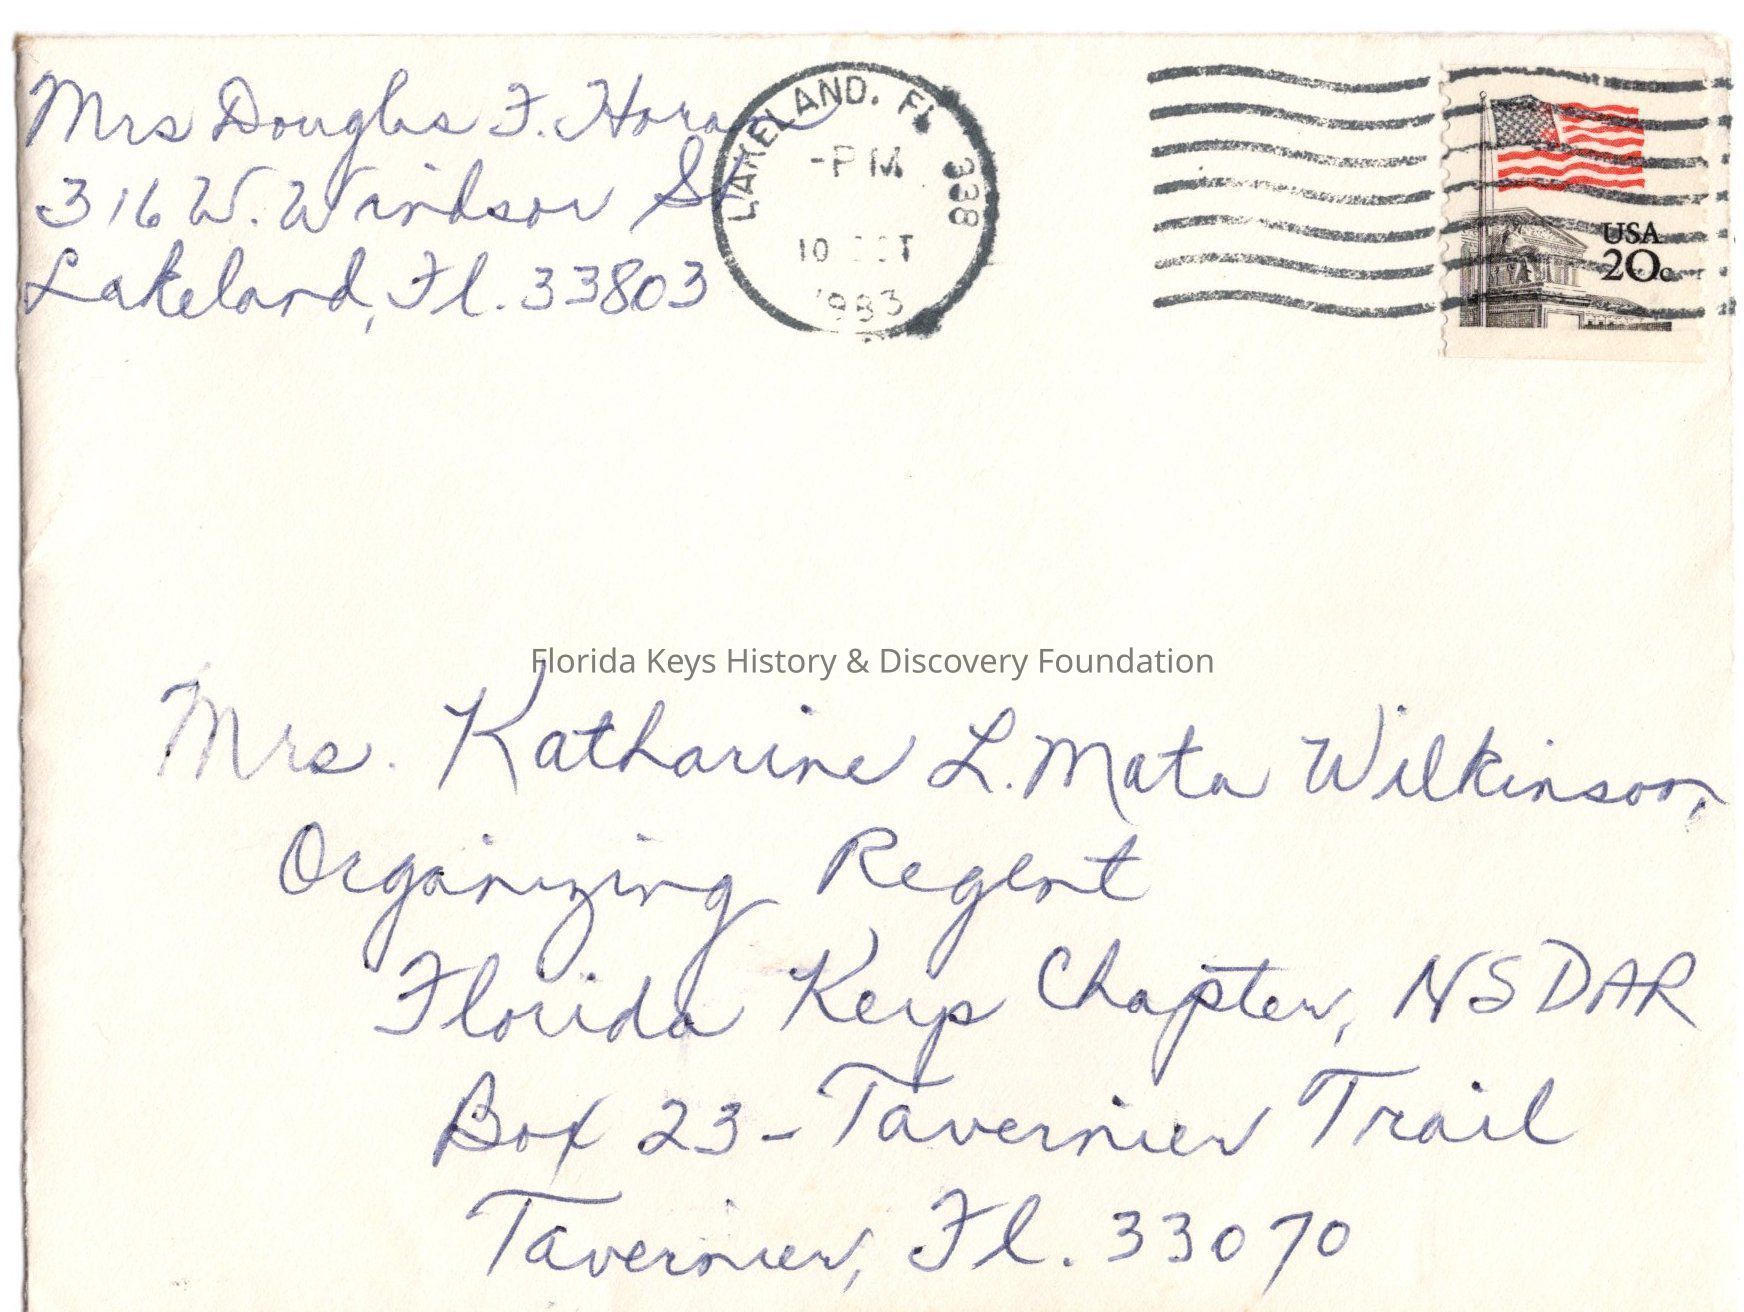 Mrs Douglas F. Horan
316 W. Windsor St
Lakeland, Fl. 33803
LAKELAND, FL 338
-PM
10 OCT
1983
USA
20c
Florida Keys History & Discovery Foundation
Mrs. Katharine L. Mata Wilkinson,
Organizing Regent
Florida Keys Chapter, NSDAR
Box 23 - Tavernier Trail
Tavernier, Fl. 33070